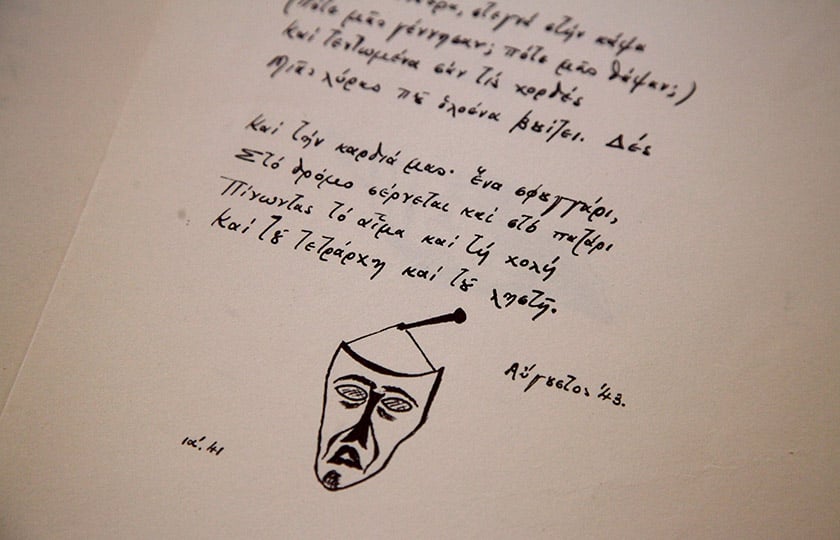 στεγνά στήν κάψα
(Πότε μᾶς γέννησαν; πότε μᾶς θάψαν;)
Καί τεντωμένα σάν τίς χορδές
Μιᾶς λύρας πȣ ὁλοένα βȣίζει. Δές
Καί τήν καρδιά μας· ἕνα σφȣγγάρι,
Στό δρόμο σέρνεται καί στό παζάρι
Πίνωντας τό αἷμα καί τή χολή
Καί τȣ͂ τετράρχη καί τȣ͂ ληστῆ.
Αὔγȣστος '43.
ια'. 41